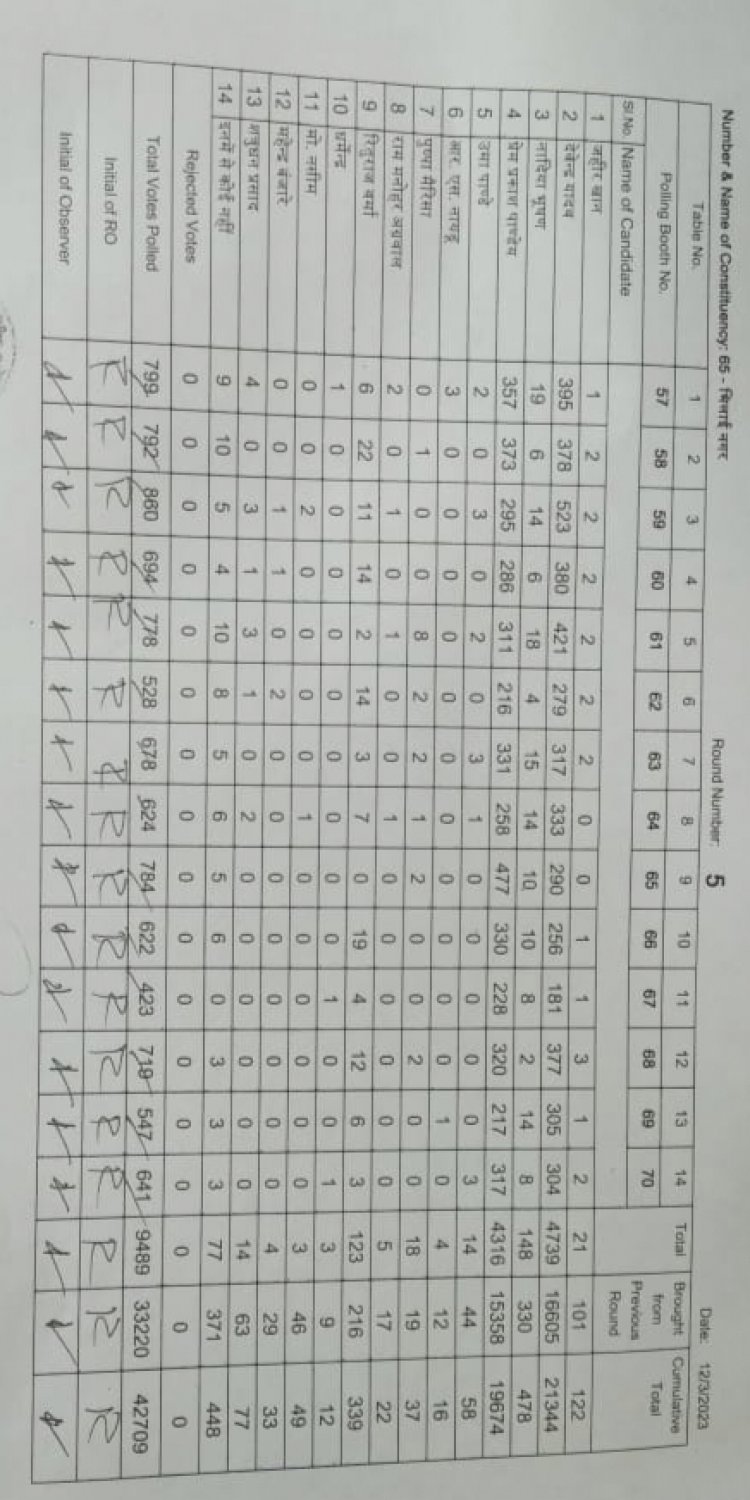 Number & Name of Constituency: 65 - भिलाई नगर Round Number: 5 Date: 12/3/2023
Table No. 1 2 3 4 5 6 7 8 9 10 11 12 13 14 Total Brought from Previous Round Cumulative Total
Polling Booth No. 57 58 59 60 61 62 63 64 65 66 67 68 69 70
Sl.No. Name of Candidate
1 जहीर खान 1 2 2 2 2 2 2 0 0 1 1 3 1 2 21 101 122
2 देवेन्द्र यादव 395 378 523 380 421 279 317 333 290 256 181 377 305 304 4739 16605 21344
3 नादिया भूषण 19 6 14 6 18 4 15 14 10 10 8 2 14 8 148 330 478
4 प्रेम प्रकाश पाण्डेय 357 373 295 286 311 216 331 258 477 330 228 320 217 317 4316 15358 19674
5 उमा पाण्डे 2 0 3 0 2 0 3 1 0 0 0 0 0 3 14 44 58
6 आर. एस. नायडू 3 0 0 0 0 0 0 0 0 0 0 0 1 0 4 12 16
7 पुष्पा मैरिसा 0 1 0 0 8 2 2 1 2 0 0 2 0 0 18 19 37
8 राम मनोहर अग्रवाल 2 0 1 0 1 0 0 1 0 0 0 0 0 0 5 17 22
9 रितुराज वर्मा 6 22 11 14 2 14 3 7 0 19 4 12 6 3 123 216 339
10 धर्मेन्द्र 1 0 0 0 0 0 0 0 0 0 1 0 0 1 3 9 12
11 मो. नसीम 0 0 2 0 0 0 0 1 0 0 0 0 0 0 3 46 49
12 महेन्द्र बंजारे 0 0 1 1 0 2 0 0 0 0 0 0 0 0 4 29 33
13 शत्रुघन प्रसाद 4 0 3 1 3 1 0 2 0 0 0 0 0 0 14 63 77
14 इनमें से कोई नहीं 9 10 5 4 10 8 5 6 5 6 0 3 3 3 77 371 448
Rejected Votes 0 0 0 0 0 0 0 0 0 0 0 0 0 0 0 0 0
Total Votes Polled 799 792 860 694 778 528 678 624 784 622 423 719 547 641 9489 33220 42709
Initial of RO
Initial of Observer